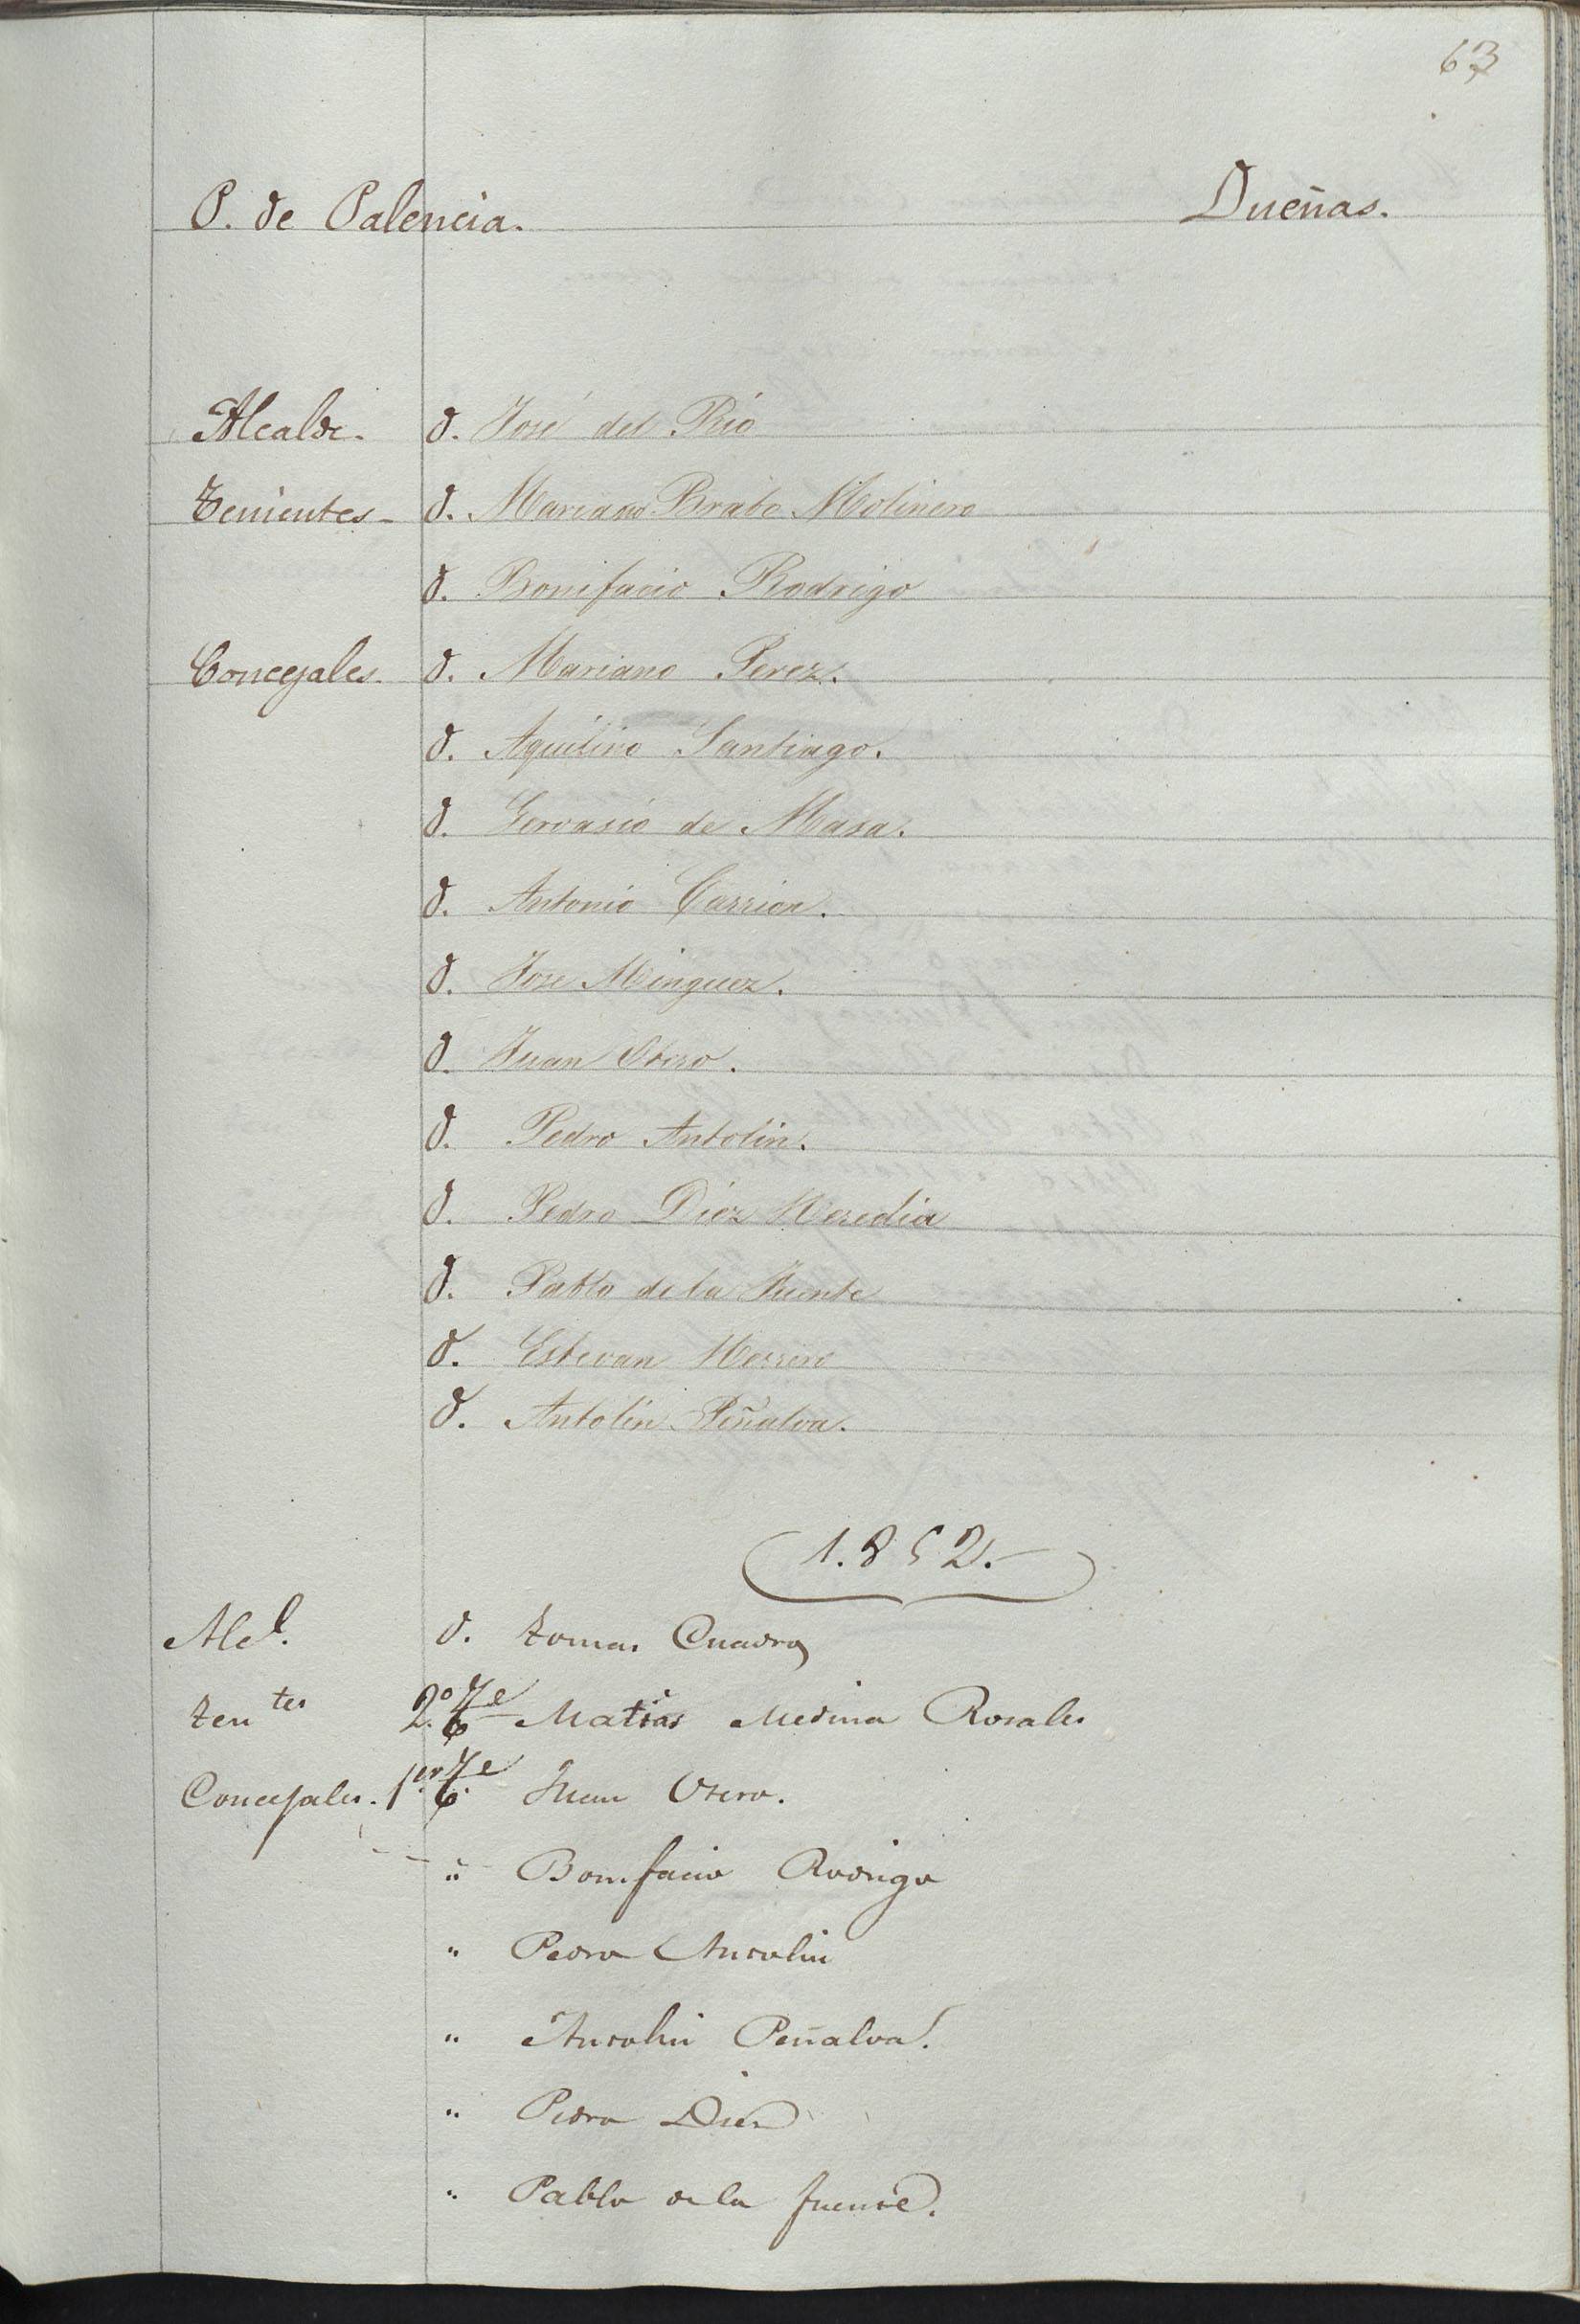 63
P. de Palencia. Dueñas.
Alcalde. D. José del Rio
Tenientes - D. Mariano Brabo Molinero
D. Bonifacio Rodrigo
Concejales. D. Mariano Perez.
D. Aquilino Santiago.
D. Gervasio de Masa.
D. Antonio Carrion.
D. Jose Minguez.
D. Juan Otero.
D. Pedro Antolin.
D. Pedro Diez Heredia
D. Pablo de la Fuente
D. Estevan Herrero
D. Antolin Peñalva.
1.852.
Alc.l D. Tomas Cuadros
Ten tes 2.o Te Matias Medina Rosales
Concejales. 1.er Te Juan Otero.
" Bonifacio Rodrigo
" Pedro Antolin
" Antolin Peñalva.
" Pedro Diez
" Pablo de la fuente.